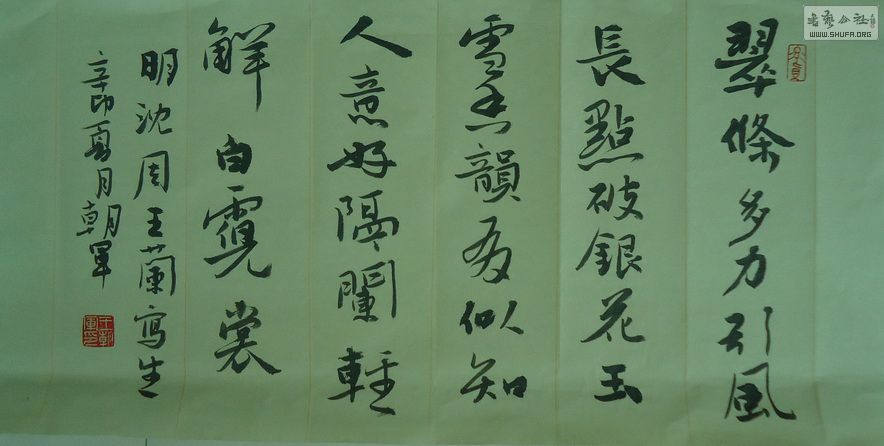 翠條多力引風
長點破銀花玉
雪香韻友似知
人意好隔闌輕
解白霓裳
明沈周王蘭寫生
辛卯夏月朝軍
王朝軍印
書藝公社
WWW.SHUFA.ORG